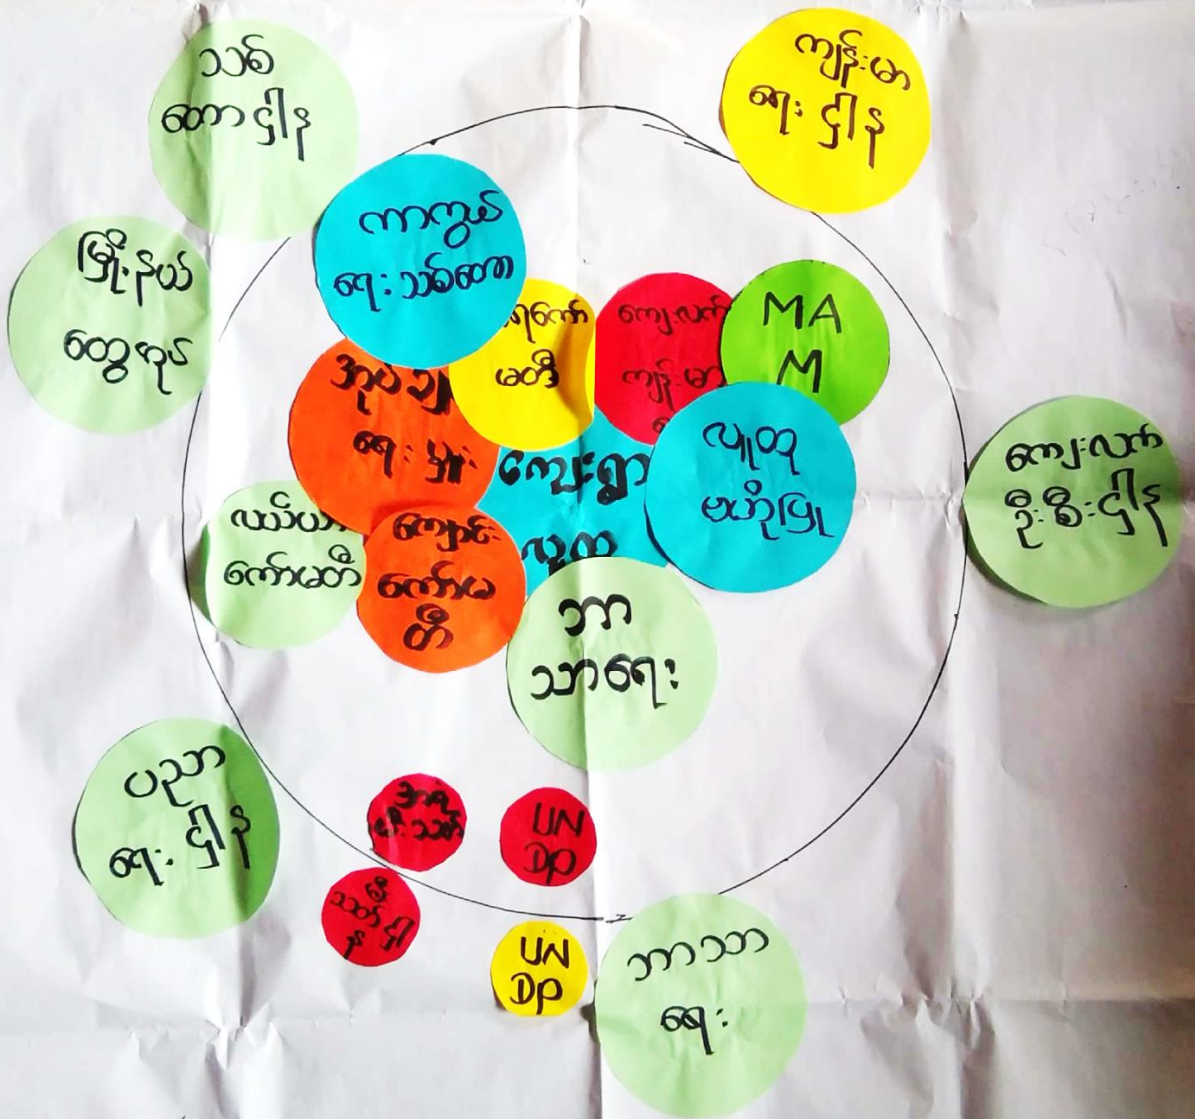 သစ်
တောဌါန
ကျန်းမာ
ရေးဌါန
မြို့နယ်
ထွေအုပ်
ကာကွယ်
ရေးသစ်တော
ရေကော်
မတီ
ကျေးလက်
ကျန်းမာ
ရေ
MA
M
အုပ်ချု
ရေးမှူး
ကျေးရွာ
လူထု
လူထု
ဗဟိုပြု
ကျေးလက်
ဦးစီးဌါန
လယ်ယာ
ကော်မတီ
ကျောင်း
ကော်မ
တီ
ဘာ
သာရေး
ပညာ
ရေးဌါန
အရံ
မီးသတ်
UN
DP
မီး
သတ်ဌါ
န
UN
DP
ဘာသာ
ရေး